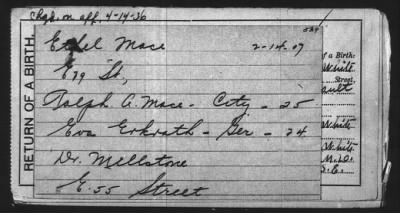 Chgd. on aff. 4-14-36
Ethel Mace 2-14-07
E 79 St,
Ralph A. Mace - City - 25
Eva Erkrath - Ger - 24
Dr. Millstone
E. 55 Street
RETURN OF A BIRTH.
of a Birth:
White
Street.
White
White
M.D.